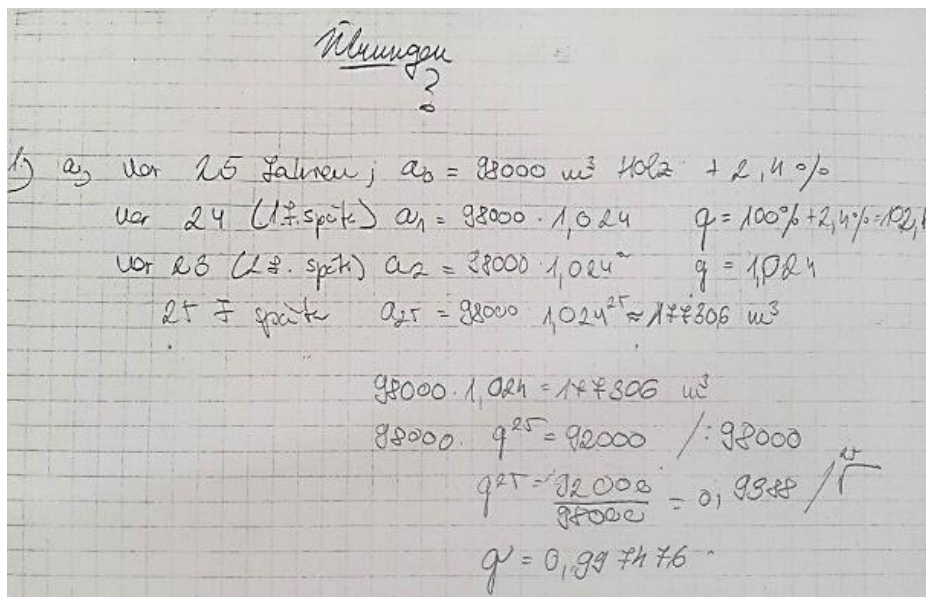 Übungen
?
1.) a) Vor 25 Jahren; a₀ = 98000 m³ Holz + 2,4%
Vor 24 (1 J. späte) a₁ = 98000 · 1,024 q = 100% + 2,4% = 102,4
Vor 23 (2 J. spät) a₂ = 98000 · 1,024² q = 1,024
25 J späte a₂₅ = 98000 1,024²⁵ ≈ 177306 m³
98000 · 1,024 = 177306 m³
98000 · q²⁵ = 92000 / : 98000
q²⁵ = 92000/98000 = 0,9388 / ²⁵√
q = 0,997476